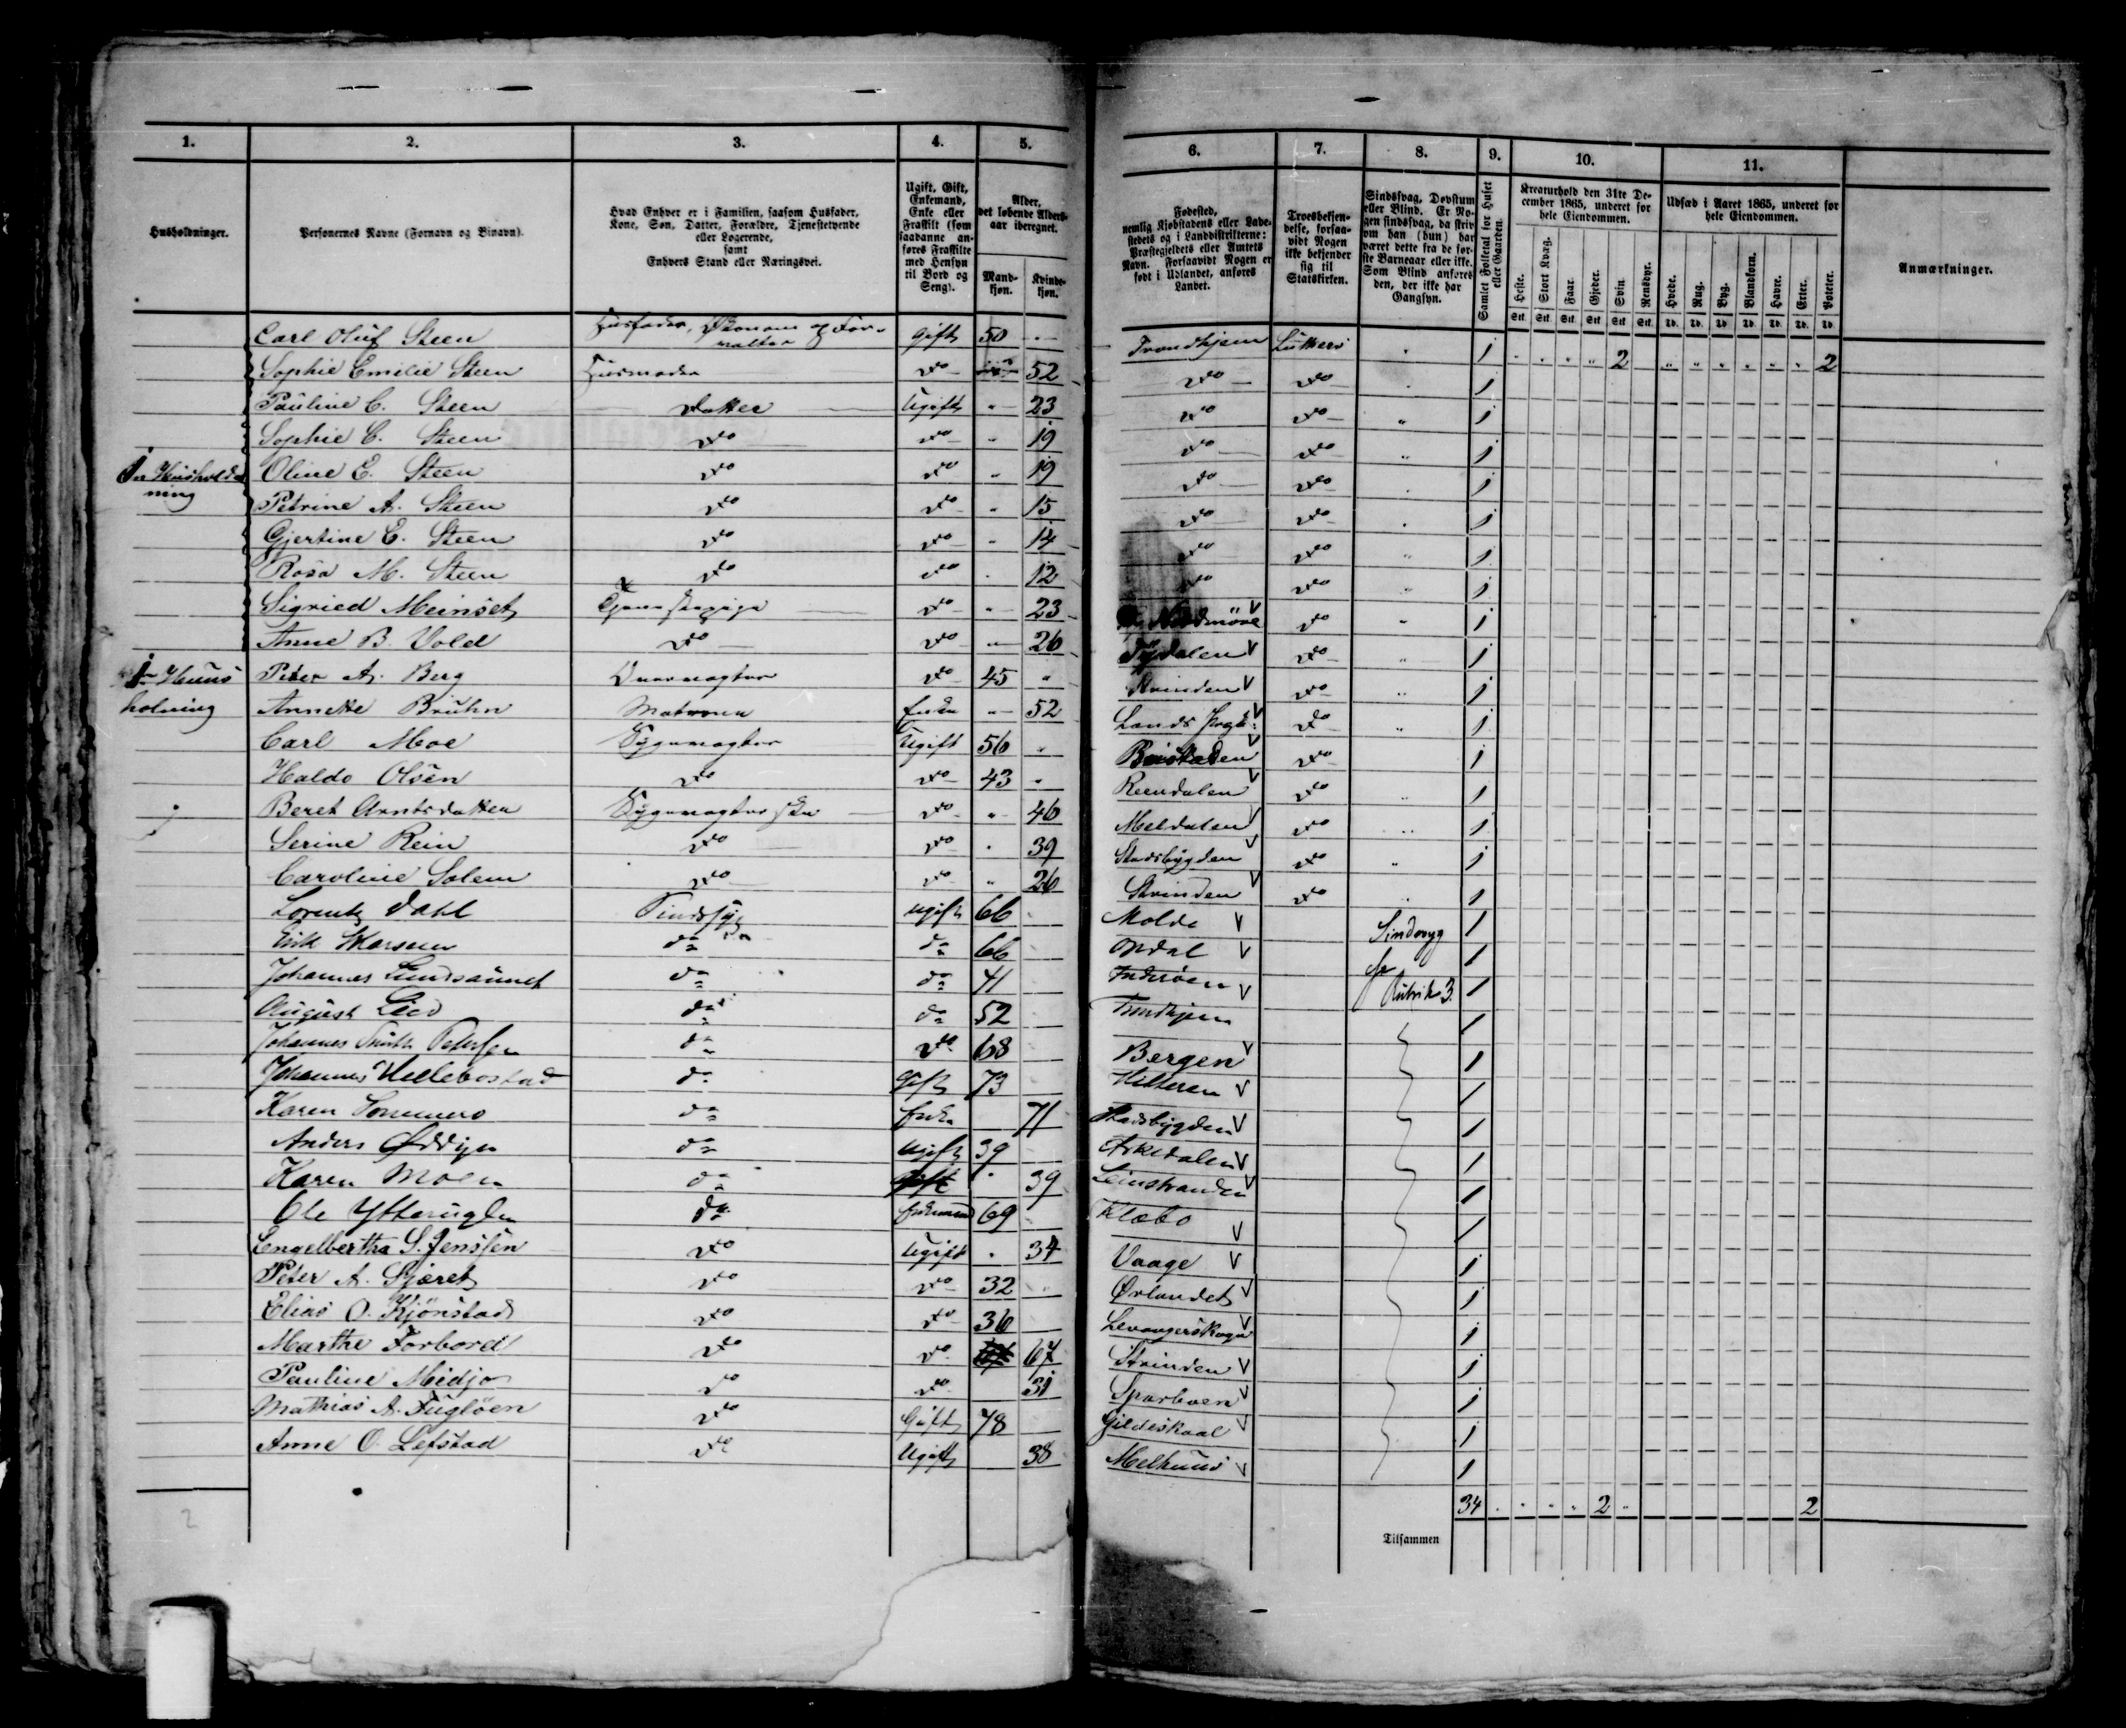 1. 2. 3. 4. 5. 6. 7. 8. 9. 10. 11.
Husholdninger.
Personernes Navne (Fornavn og Binavn).
Hvad Enhver er i Familien, saasom Husfader,
Kone, Søn, Datter, Forældre, Tjenestetyende
eller Logerende,
samt
Enhvers Stand eller Næringsvei.
Ugift, Gift,
Enkemand,
Enke eller
Fraskilt (som
saadanne an-
føres Fraskilte
med Hensyn
til Bord og
Seng).
Alder,
det løbende Alders-
aar iberegnet.
Mand-
kjøn.
Kvinde-
kjøn.
Fødested,
nemlig Kjøbstadens eller Lade-
stedets og i Landdistrikterne:
Præstegjeldets eller Amtets
Navn. Forsaavidt Nogen er
født i Udlandet, anføres
Landet.
Troesbekjen-
delse, forsaa-
vidt Nogen
ikke bekjender
sig til
Statskirken.
Sindssvag, Døvstum
eller Blind. Er No-
gen sindssvag, da skriv
om han (hun) har
været dette fra de før-
ste Barneaar eller ikke.
Som Blind anføres
den, der ikke har
Gangsyn.
Samlet Folketal for Huset
eller Gaarden.
Kreaturhold den 31te De-
cember 1865, underet for
hele Eiendommen.
Heste. Stort Kvæg. Faar. Gjeder. Svin. Rensdyr.
Stk. Stk. Stk. Stk. Stk. Stk.
Udsæd i Aaret 1865, underet for
hele Eiendommen.
Hvede. Rug. Byg. Blandkorn. Havre. Erter. Poteter.
Td. Td. Td. Td. Td. Td. Td.
Anmærkninger.
Carl Oluf Steen Husfader, Økonom og For-
valter Gift 50 Trondhjem Luthers 1 2 2
Sophie Emilie Steen Husmoder do 52 do do 1
Pauline C. Steen Datter Ugift 23 do do 1
Sophie C. Steen do do 19 do do 1
1n Husholdning Oline E. Steen do do 19 do do 1
Petrine A. Steen do do 15 do do 1
Gjertine C. Steen do do 14 do do 1
Rosa M. Steen do do 12 do do 1
Sigried Meinset Tjenestepige do 23 Nordmöre V do 1
Anne B. Vold do do 26 Tydalen V do 1
1n Huus
holning Peter A. Berg do 45 Strinden V do 1
Annette Bruhn Matrone Enke 52 Lands V do 1
Carl Moe Sygevogter Ugift 56 Beistaden V do 1
Haldo Olsen do do 43 V do 1
Beret Arntsdatter Sygevogterske do 46 Meldalen V do 1
Serine Rein do do 39 Stadsbygden V do 1
Caroline Solem do do 26 Strinden V do 1
Lorentz Dahl Sindssyg Ugift 66 Molde V Sindssyg 1
Erik do do 66 Opdal V cfr 1
Johannes Lundsaunet do do 41 Inderöen V Rubrik 3. 1
August Lied do do 52 Trondhjem 1
Johannes Smith Petersen do do 68 Bergen V 1
Johannes Hellebostad do Gift 73 Hitteren V 1
Karen Sommero do Enke 71 Stadsbygden V 1
Anders do Ugift 39 Orkedalen V 1
Karen Moen do Gift 39 Leinstranden V 1
Ole do Enkemand 69 Klæbo V 1
Engelbertha S. Jenssen do Ugift 34 Vaage V 1
Peter A. Sjæret do do 32 Ørlandet V 1
Elias O. Kjönstad do do 36 Levangerskogn V 1
Marthe Forbord do do 67 Strinden V 1
Pauline Midjo do do 31 Sparboen V 1
Mathias A. Fuglöen do Gift 78 Gildeskaal V 1
Anne O. Lefstad do Ugift 38 Melhuus V 1
34 2 2
Tilsammen
2